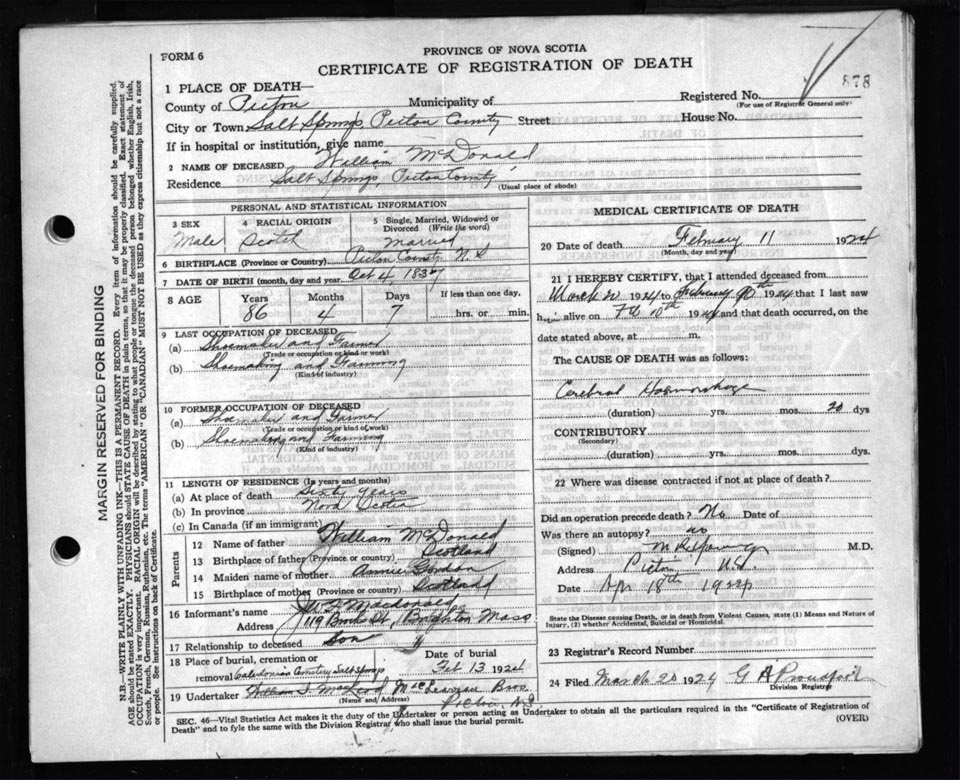 FORM 6
PROVINCE OF NOVA SCOTIA
CERTIFICATE OF REGISTRATION OF DEATH
878
1 PLACE OF DEATH—
County of Pictou Municipality of Registered No.
(For use of Registrar General only)
City or Town Salt Springs, Pictou County Street House No.
If in hospital or institution, give name
2 NAME OF DECEASED William McDonald
Residence Salt Springs, Pictou County
(Usual place of abode)
PERSONAL AND STATISTICAL INFORMATION
3 SEX 4 RACIAL ORIGIN 5 Single, Married, Widowed or Divorced (Write the word)
Male Scotch Married
6 BIRTHPLACE (Province or Country) Pictou County N.S
7 DATE OF BIRTH (month, day and year) Oct 4, 1837
8 AGE Years Months Days If less than one day,
86 4 7 hrs. or min.
9 LAST OCCUPATION OF DECEASED
(a) Shoemaker and Farmer
(Trade or occupation or kind or work)
(b) Shoemaking and Farming
(Kind of industry)
10 FORMER OCCUPATION OF DECEASED
(a) Shoemaker and Farmer
(Trade or occupation or kind of work)
(b) Shoemaking and Farming
(Kind of industry)
11 LENGTH OF RESIDENCE (In years and months)
(a) At place of death Sixty Years
(b) In province Nova Scotia
(c) In Canada (if an immigrant)
Parents
12 Name of father William McDonald
13 Birthplace of father (Province or country) Scotland
14 Maiden name of mother Annie Gordon
15 Birthplace of mother (Province or country) Scotland
16 Informant's name Macdonald
Address 119 Brooks St, Brighton Mass
17 Relationship to deceased Son
18 Place of burial, cremation or removal Caledonian Cemetery Salt Springs
Date of burial
Feb 13 1924
19 Undertaker William McLeod Bros
(Name and Address) Pictou, N.S.
MEDICAL CERTIFICATE OF DEATH
20 Date of death February 11 1924
(Month, day and year)
21 I HEREBY CERTIFY, that I attended deceased from
March 1924 to February 10th 1924 that I last saw
h alive on Feb 10th 1924 and that death occurred, on the
date stated above, at m.
The CAUSE OF DEATH was as follows:
Cerebral Haemorrhage
(duration) yrs. mos. 20 dys
CONTRIBUTORY
(Secondary)
(duration) yrs. mos. dys
22 Where was disease contracted if not at place of death?
Did an operation precede death? No Date of
Was there an autopsy? no
(Signed) M.D.
Address Pictou N.S.
Date Apr 18th 1924
State the Disease causing Death, or in death from Violent Causes, state (1) Means and Nature of
Injury, (2) whether Accidental, Suicidal or Homicidal.
23 Registrar's Record Number
24 Filed March 20 1924 G A Proudfoot
Division Registrar
SEC. 46—Vital Statistics Act makes it the duty of the Undertaker or person acting as Undertaker to obtain all the particulars required in the "Certificate of Registration of
Death" and to fyle the same with the Division Registrar who shall issue the burial permit.
(OVER)
MARGIN RESERVED FOR BINDING
N.B.—WRITE PLAINLY WITH UNFADING INK—THIS IS A PERMANENT RECORD. Every item of information should be carefully supplied.
AGE should be stated EXACTLY. PHYSICIANS should STATE CAUSE OF DEATH in plain terms, so that it may be properly classified. Exact statement of
OCCUPATION is very important. RACIAL ORIGIN will be described by stating to what people or tongue the deceased person belonged whether English, Irish,
Scotch, French, German, Russian, Ruthenian, etc. The terms "AMERICAN" OR "CANADIAN" MUST NOT BE USED as they express citizenship but not a race
or people. See instructions on back of Certificate.